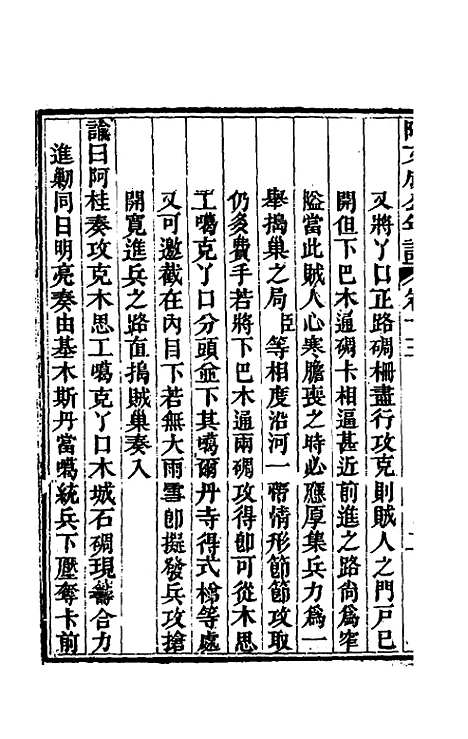 又將丫口正路碉柵盡行攻克則賊人之門戸已
開但下巴木通碉卡相逼甚近前進之路尚爲窄
隘當此賊人心寒膽喪之時必應厚集兵力爲一
舉搗巢之局臣等相度沿河一帶情形節節攻取
仍多費手若將下巴木通兩碉攻得卽可從木思
工噶克丫口分頭並下其噶爾丹寺得式梯等處
又可邀截在內目下若無大雨雪卽擬發兵攻搶
開寛進兵之路直搗賊巢奏入
諭曰阿桂奏攻克木思工噶克丫口木城石碉現籌合力
進勦同日明亮奏由基木斯丹當噶統兵下壓奪卡前